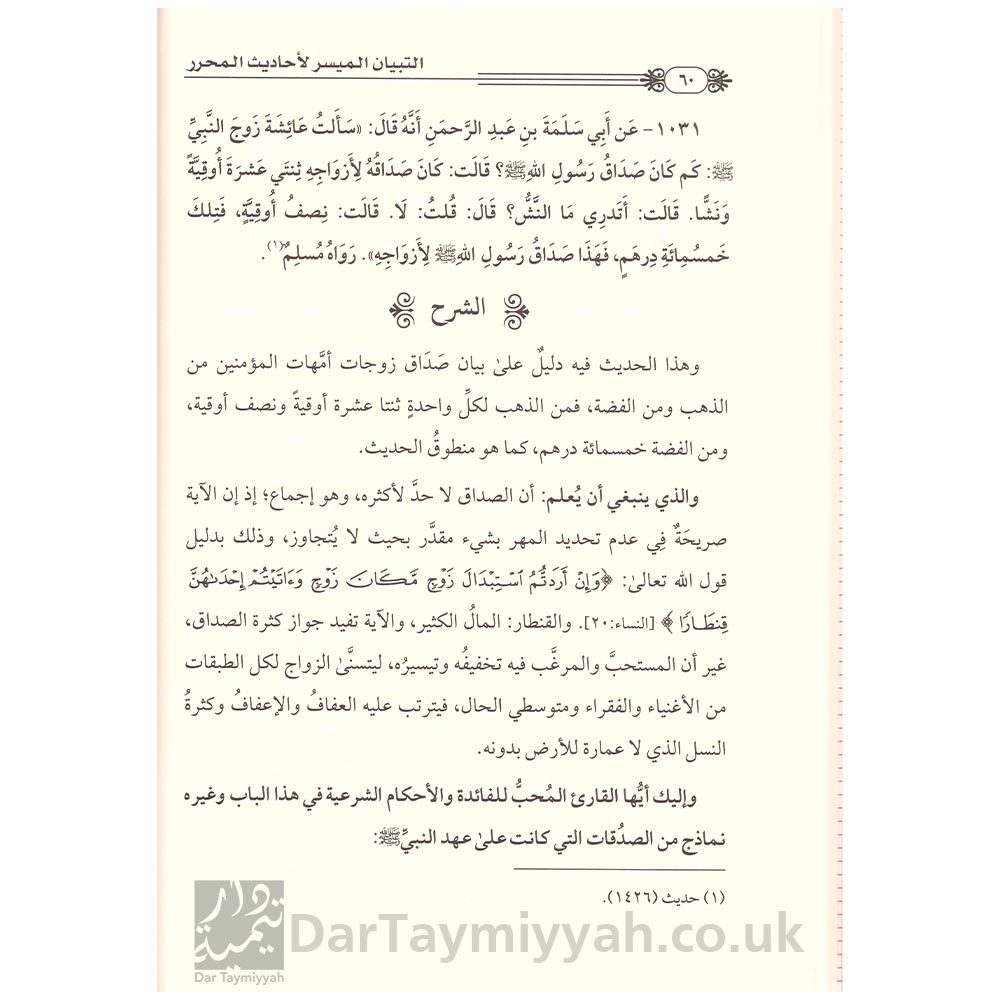 التبيان الميسر لأحاديث المحرر
٦٠
١٠٣١- عَن أَبِي سَلَمَةَ بنِ عَبدِ الرَّحمَنِ أَنَّهُ قَالَ: «سَأَلتُ عَائِشَةَ زَوجَ النَّبِيِّ
ﷺ: كَم كَانَ صَدَاقُ رَسُولِ اللهِﷺ؟ قَالَت: كَانَ صَدَاقُهُ لِأَزوَاجِهِ ثِنتَي عَشرَةَ أُوقِيَّةً
وَنَشًّا. قَالَت: أَتَدرِي مَا النَّشُّ؟ قَالَ: قُلتُ: لَا. قَالَت: نِصفُ أُوقِيَّةٍ، فَتِلكَ
خَمسُمِائَةِ دِرهَمٍ، فَهَذَا صَدَاقُ رَسُولِ اللهِﷺ لِأَزوَاجِهِ». رَوَاهُ مُسلِمٌ(١).
الشرح
وهذا الحديث فيه دليلٌ علىٰ بيان صَدَاق زوجات أمَّهات المؤمنين من
الذهب ومن الفضة، فمن الذهب لكلِّ واحدةٍ ثنتا عشرة أوقيةً ونصف أوقية،
ومن الفضة خمسمائة درهم، كما هو منطوقُ الحديث.
والذي ينبغي أن يُعلم: أن الصداق لا حدَّ لأكثره، وهو إجماع؛ إذ إن الآية
صريحَةٌ فِي عدم تحديد المهر بشيء مقدَّر بحيث لا يُتجاوز، وذلك بدليل
قول الله تعالىٰ: ﴿وَإِنْ أَرَدتُّمُ ٱسْتِبْدَالَ زَوْجٍ مَّكَانَ زَوْجٍ وَءَاتَيْتُمْ إِحْدَىٰهُنَّ
قِنطَارًا﴾ [النساء:٢٠]. والقنطار: المالُ الكثير، والآية تفيد جواز كثرة الصداق،
غير أن المستحبَّ والمرغَّب فيه تخفيفُه وتيسيرُه، ليتسنَّىٰ الزواج لكل الطبقات
من الأغنياء والفقراء ومتوسطي الحال، فيترتب عليه العفافُ والإعفافُ وكثرةُ
النسل الذي لا عمارة للأرض بدونه.
وإليك أيُّها القارئ المُحبُّ للفائدة والأحكام الشرعية في هذا الباب وغيره
نماذج من الصدُقات التي كانت علىٰ عهد النبيِّﷺ:
(١) حديث (١٤٢٦).
دار تيمية
Dar Taymiyyah
DarTaymiyyah.co.uk